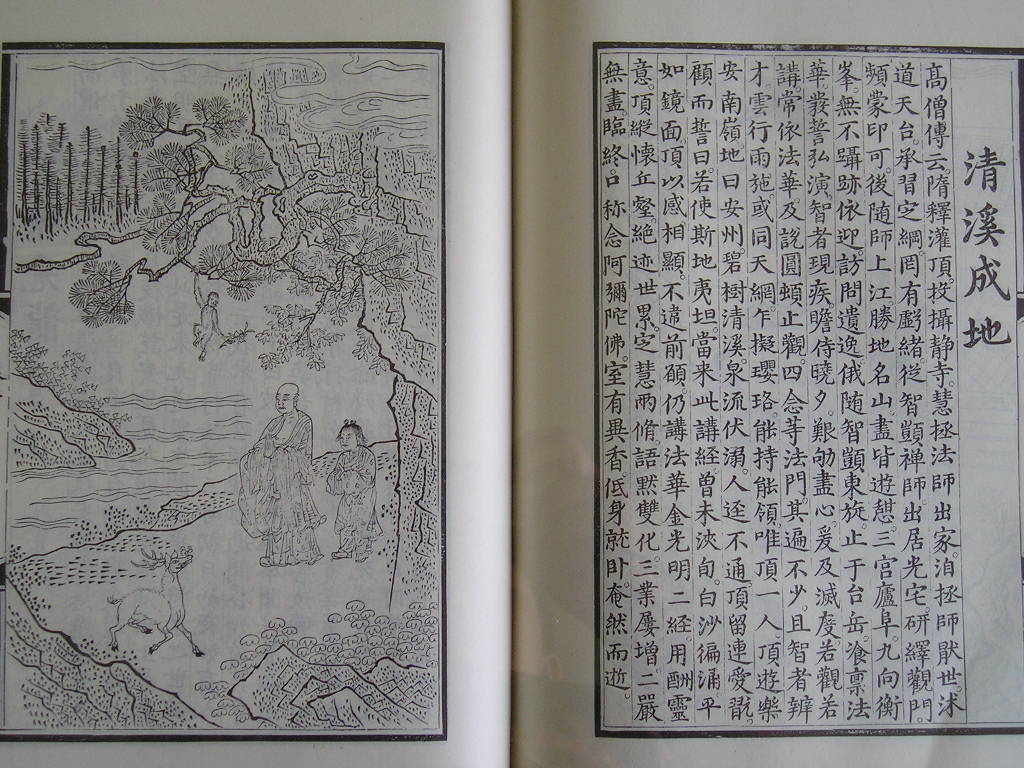 清溪成地
高僧傳云。隋釋灌頂投攝靜寺。慧拯法師出家。洎拯師厭世沭
道天台。承習定綱。罔有虧緒。從智顗禪師。出居光宅。研繹觀門。
頻蒙印可。後隨師上江勝地名山盡皆遊憩。三宮廬阜。九向衡
峯。無不躡跡依迎。訪問遺逸。俄隨智顗東旋。止于台岳。飡禀法
華。叢誓弘演。智者現疾。瞻侍曉夕。艱劬盡心。爰及滅度。若觀若
講。常依法華。及說圓頓止觀四念等法門。其遍不少。且智者辨
才。雲行雨施。或同天網。乍擬瓔珞。能持能領。唯頂一人。頂遊樂
安南嶺。地曰安州。碧樹清溪。泉流伏溺。人逕不通。頂留連愛翫。
顧而誓曰。若使斯地夷坦。當來此講經。曾未浹旬。白沙徧涌。平
如鏡面。頂以感相顯。不違前願。仍講法華金光明二經。用酬靈
意。頂縱懷丘壑。絕迹世累。定慧兩脩。語默雙化。三業屢增。二嚴
無盡。臨終。口称念阿彌陀佛。室有異香。低身就卧。奄然而逝。